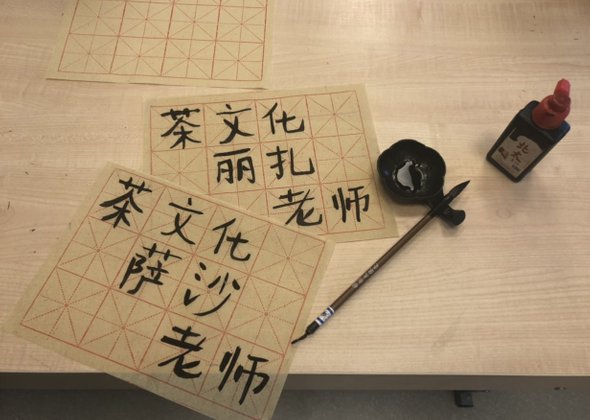 茶文化
丽扎
老师
茶文化
萨沙
老师